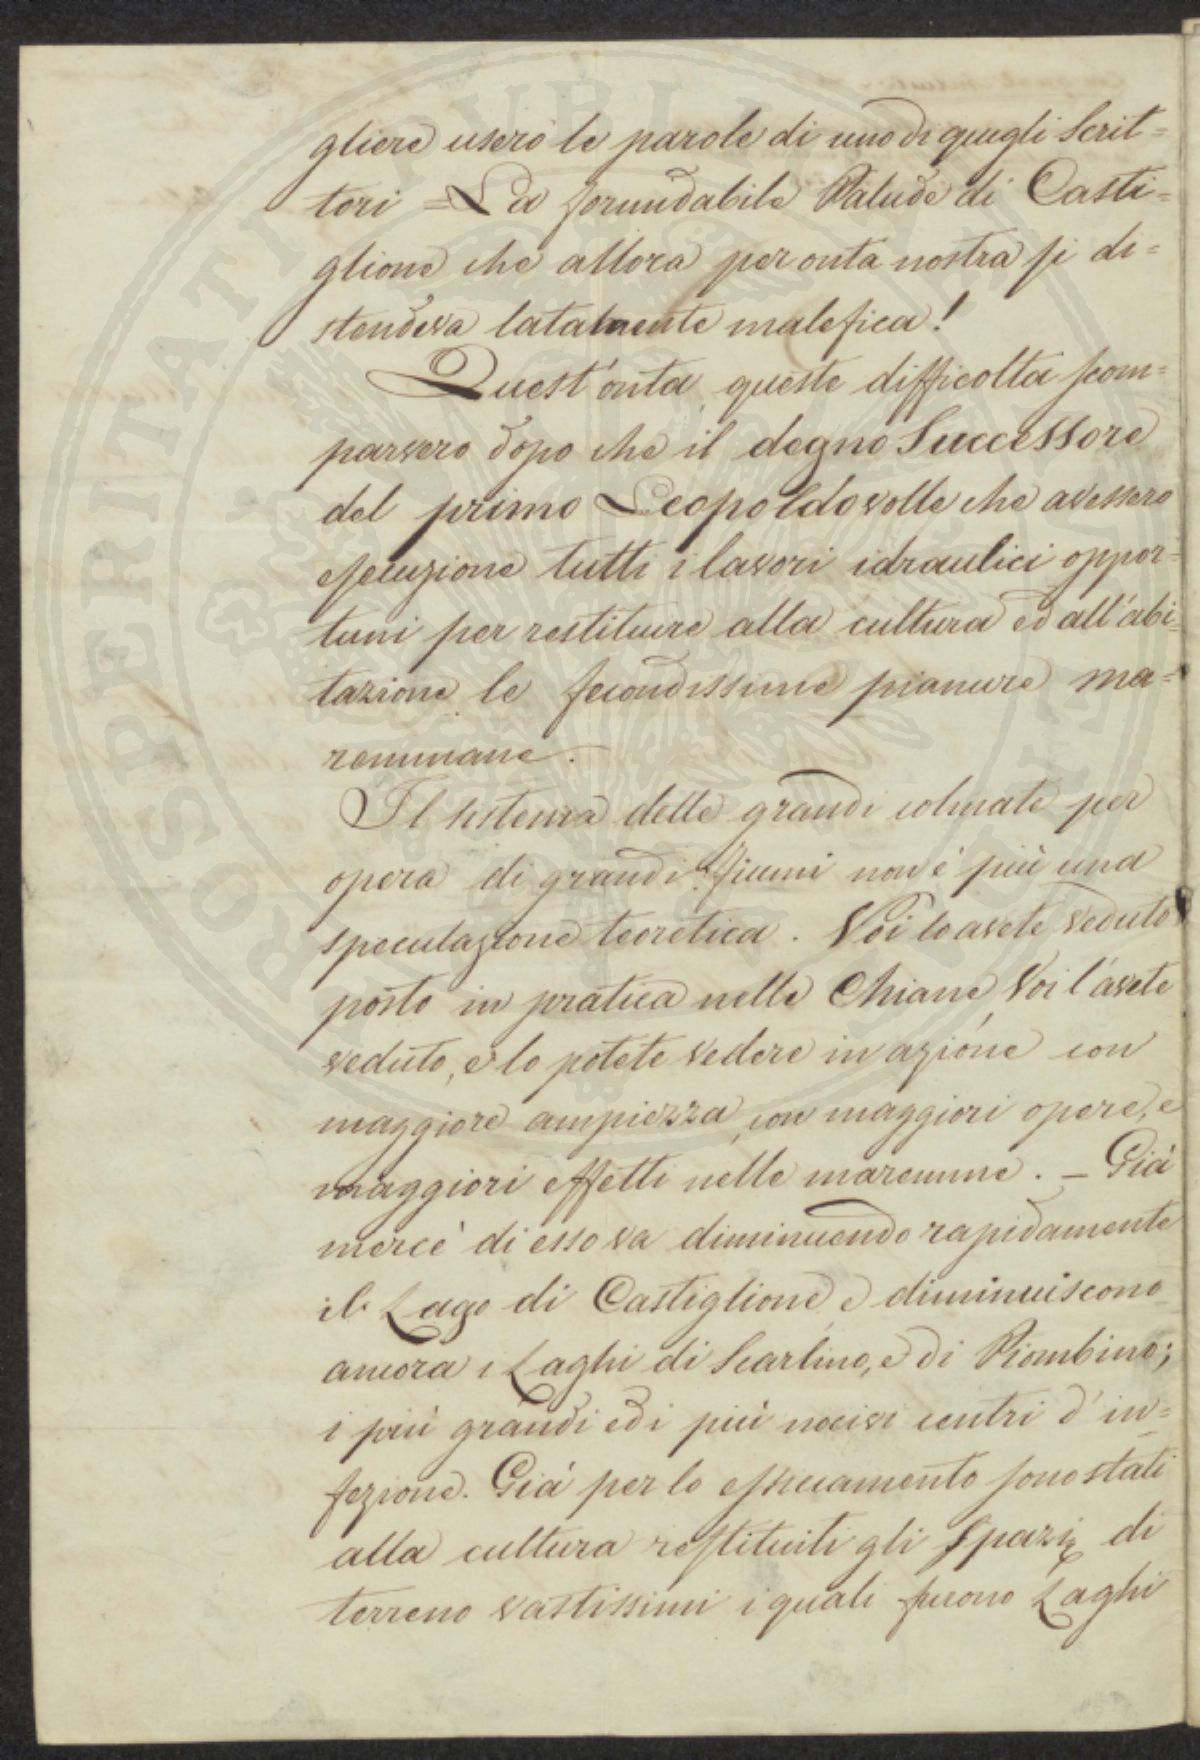 gliere userò le parole di uno di quegli Scrit=
tori = La formidabile Palude di Casti=
glione che allora per onta nostra si di=
stendeva latamente malefica!
Quest'onta, queste difficoltà scom=
parvero dopo che il degno Successore
del primo Leopoldo volle che avessero
esecuzione tutti i lavori idraulici oppor=
tuni per restituire alla cultura ed all'abi=
tazione le fecondissime pianure ma=
remmane.
Il sistema delle grandi colmate per
opera di grandi fiumi non è più una
speculazione teoretica. Voi lo avete veduto
posto in pratica nelle Chiane Voi l'avete
veduto, e lo potete vedere in azione con
maggiore ampiezza, con maggiori opere, e
maggiori effetti nelle maremme. _ Già
mercè di esso va diminuendo rapidamente
il Lago di Castiglione, e diminuiscono
ancora i Laghi di Scarlino, e di Piombino;
i più grandi ed i più nocivi centri d'in=
fezione. Già per lo essiccamento sono stati
alla cultura restituiti gli spazi di
terreno vastissimi i quali furono Laghi
PROSPERITATI PUBLICAE